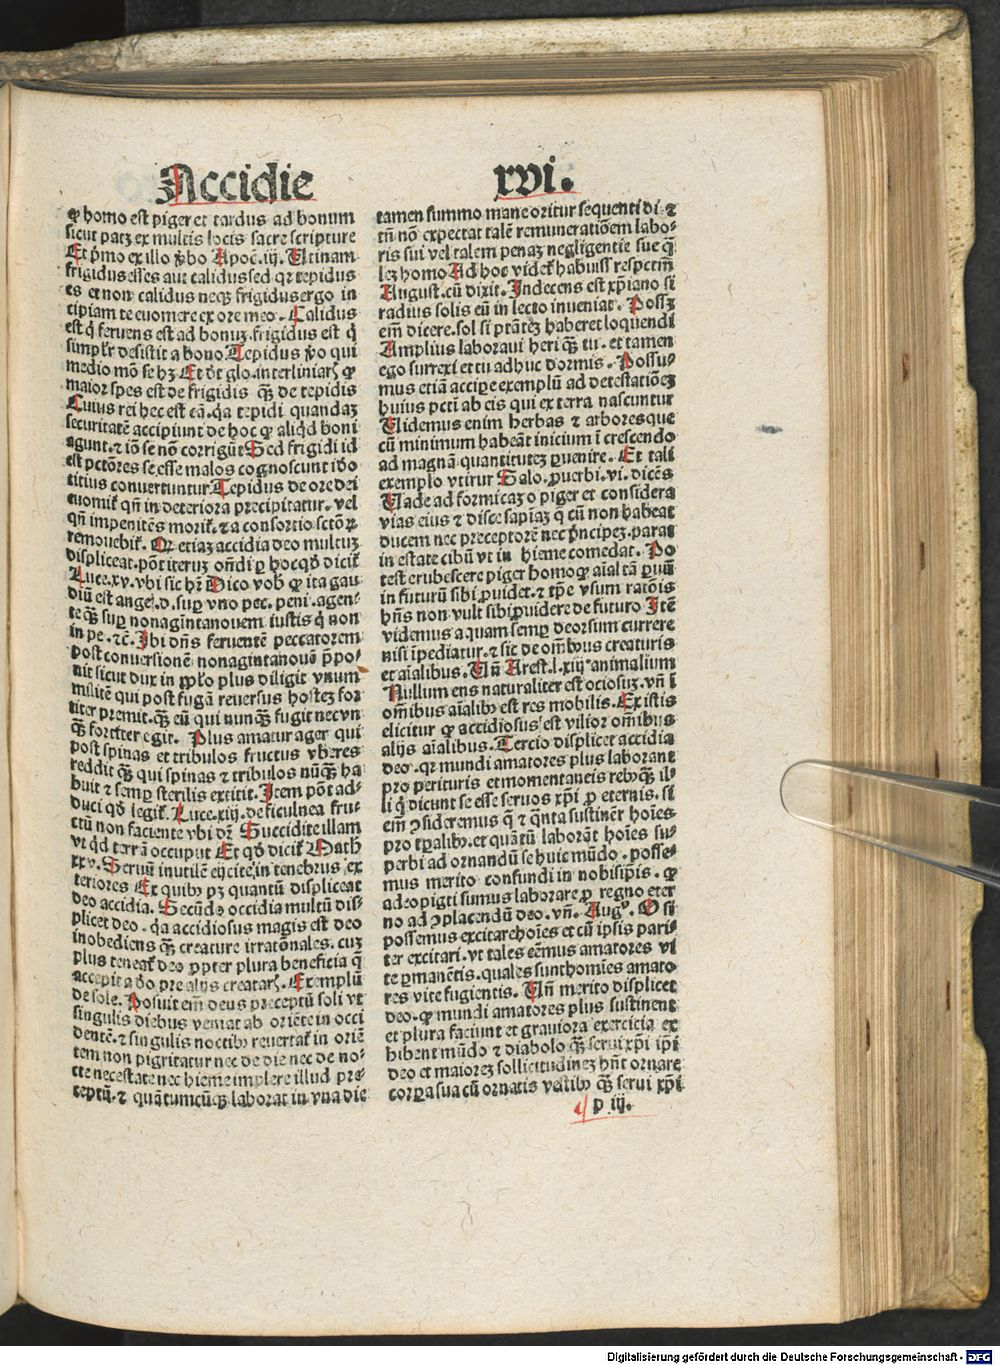 Accidie
xvi.
ꝙ homo est piger et tardus ad bonum
sicut patꝫ ex multis locis sacre scripture
Et pͥmo ex illo ꝟbo Apoc̄. iij. Utinam
frigidus esses aut calidus sed qꝛ tepidus
es et non calidus neqꝫ frigidus ergo in
cipiam te euomere ex ore meo. Calidus
est q̇ feruens est ad bonuꝫ. frigidus est q̇
simplr̄ desistit a bono Tepidus ꝟo qui
medio mō se hꝫ Et dt̄ glo. interliniarꝭ ꝙ
maior spes est de frigidis qꝫ̄ de tepidis
Cuius rei hec est cā. qꝛ tepidi quandaꝫ
securitatē accipiunt de hoc ꝙ aliqd̄ boni
agunt. ⁊ iō se nō corrigūt Sed frigidi id
est pctōres se esse malos cognoscunt iđo
citius conuertuntur. Tepidus de ore dei
euomit̄ qn̄ in deteriora precipitatur. vel
qn̄ impenitēs morit̄. ⁊ a consortio sctōꝝ
remouebit̄. Qꝛ etiaꝫ accidia deo multuꝫ
displiceat. pōt iteruꝫ on̄di ꝑ hoc qd̄ dicit̄
Luce. xv. vbi sic hꝫ̄ Dico vob̄ ꝙ ita gau
diū est angel. d. suꝑ vno pec. peni. agen⸗
te qꝫ̄ suꝑ nonagintanouem iustis q̇ non
in pe. ⁊c̄. Ibi dn̄s feruentē peccatorem
post conuersionē nonagintanouē p̄po⸗
nit sicut dux in ꝓelio plus diligit vnum
militē qui post fugā reuersus hostes for
titer premit. qꝫ̄ eū qui nunqꝫ̄ fugit nec vn
qꝫ̄ fortiter egit. Plus amatur ager qui
post spinas et tribulos fructus vberes
reddit qꝫ̄ qui spinas ⁊ tribulos nūqꝫ̄ ha
buit ⁊ semꝑ sterilis extitit. Item pōt ad⸗
duci qd̄ legit̄. Luce. xiij. de ficulnea fru⸗
ctū non faciente vbi dꝛ̄ Succidite illam
vt qd̄ terrā occupat Et qd̄ dicit̄ Math̄
xxv. Seruū inutilē eijcite in tenebras ex
teriores Ex quibꝰ pꝫ quantū displiceat
deo accidia. Secūdo occidia multū dis⸗
plicet deo. qꝛ accidiosus magis est deo
inobediens qꝫ̄ creature irratōnales. cuꝫ
plus teneat̄ deo ꝓpter plura beneficia q̄
accepit a deo pre alijs creatarꝭ. Exemplū
de sole. Posuit em̄ deus preceptū soli vt
singulis diebus veniat ab oriēte in occi
dentē. ⁊ singulis noctibꝰ reuertat̄ in oriē
tem non pigritatur nec de die nec de no⸗
cte nec estate nec hieme implere illud pre⸗
ceptū. ⁊ quātumcūqꝫ laborat in vna die
tamen summo mane oritur sequenti di. ⁊
tn̄ nō expectat talē remuneratiōem labo⸗
ris sui vel talem penaꝫ negligentie sue q̄
leꝫ homo Ad hoc videt̄ habuisse respectū
August. cū dixit. Indecens est xp̄iano si
radius solis eū in lecto inueniat. Possꝫ
em̄ dicere. sol si ptātēꝫ haberet loquendi
Amplius laboraui heri qꝫ̄ tu. et tamen
ego surrexi et tu adhuc dormis. Possu⸗
mus etiā accipe exemplū ad detestatiōeꝫ
huius pcti ab eis qui ex terra nascuntur
Uidemus enim herbas ⁊ arbores que
cū minimum habeāt inicium ī crescendo
ad magnā quantitateꝫ ꝑuenire. Et tali
exemplo vtitur Salo. ꝓuerbi. vi. dicēs
Uade ad formicaꝫ o piger et considera
vias eius ⁊ disce sapīaꝫ q̄ cū non habeat
ducem nec preceptorē nec pͥncipeꝫ. parat
in estate cibū vt in hieme comedat. Po
test erubescere piger homo ꝙ aīal tā ꝑuū
in futurū sibi ꝓuidet. ⁊ ip̄e vsum ratōis
hn̄s non vult sibi ꝓuidere de futuro Itē
videmus aquam semꝑ deorsum currere
nisi īpediatur. ⁊ sic de om̄ibus creaturis
et aīalibus. Un̄ Arest. l. xiij animalium
Nullum ens naturaliter est ociosuꝫ. vn̄ ī
om̄ibus aīalibꝰ est res mobilis. Ex istis
elicitur ꝙ accidiosus est vilior om̄ibus
alijs aīalibus. Tercio displicet accidia
deo. qꝛ mundi amatores plus laborant
pro perituris et momentaneis rebꝰ qꝫ̄ il⸗
li q̇ dicunt se esse seruos xp̄i ꝓ eternis. si
em̄ ꝯsideremus q̄ ⁊ q̄nta sustinēt hoīes
pro tꝑalibꝰ. et quātū laborāt hoīes su⸗
perbi ad ornandū se huic mūdo. posse⸗
mus merito confundi in nobisip̄is. ꝙ
adeo pigti sumus laborare ꝓ regno eter
no ad ꝯplacendū deo. vn̄. Augꝰ. O si
possemus excitare hoīes et cū ip̄sis pari⸗
ter excitari. vt tales eēmus amatores vi
te ꝑmanētis. quales sunt homies amato
res vite fugientis. Un̄ merito displicet
deo. ꝙ mundi amatores plus sustinent
et plura faciunt et grauiora exercicia ex
hibent mūdo ⁊ diabolo qꝫ̄ serui xp̄i ip̄i
deo et maiores sollicitudineꝫ hn̄t ornare
corꝑa sua cū ornatis vestibꝰ qꝫ̄ serui xp̄i
p iij.
Digitalisierung gefördert durch die Deutsche Forschungsgemeinschaft - DFG